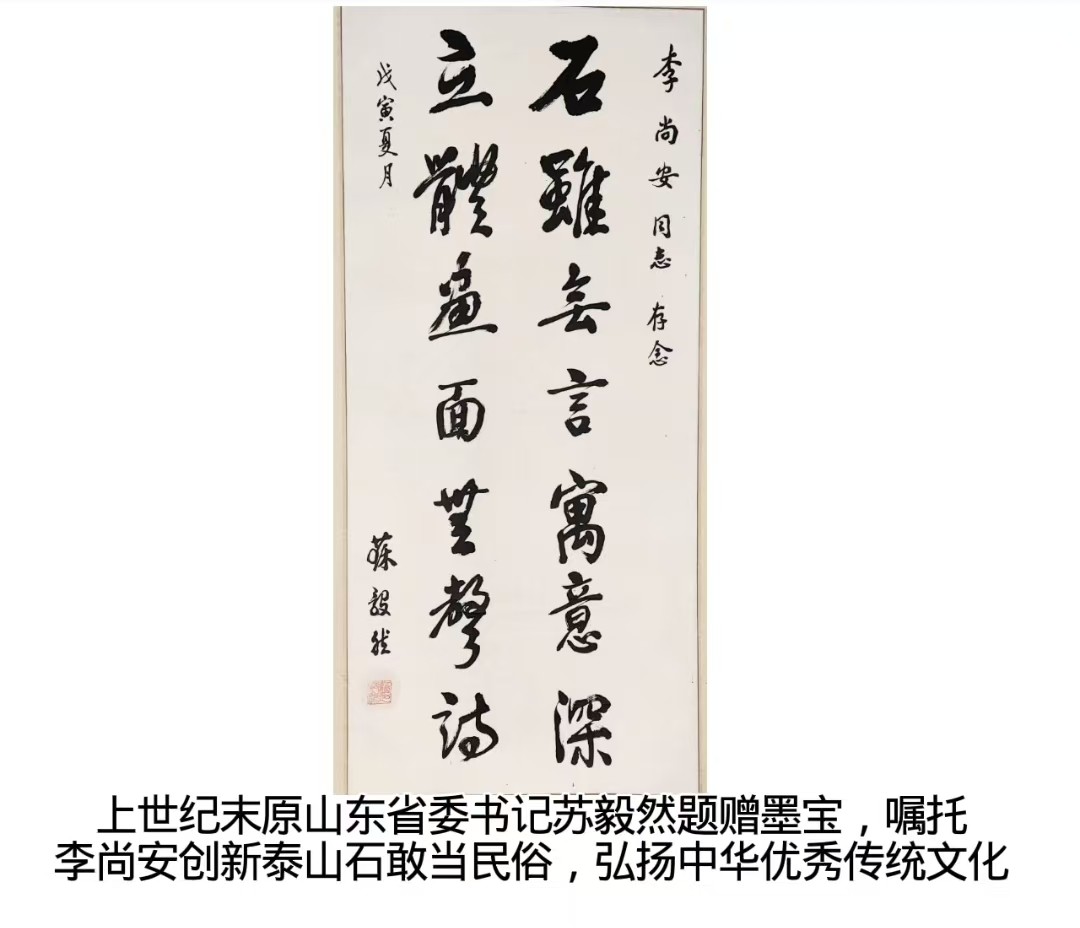 李尚安同志存念
石雖無言寓意深
立體畫面無聲詩
戊寅夏月
蘇毅然
上世纪末原山东省委书记苏毅然题赠墨宝，嘱托
李尚安创新泰山石敢当民俗，弘扬中华优秀传统文化